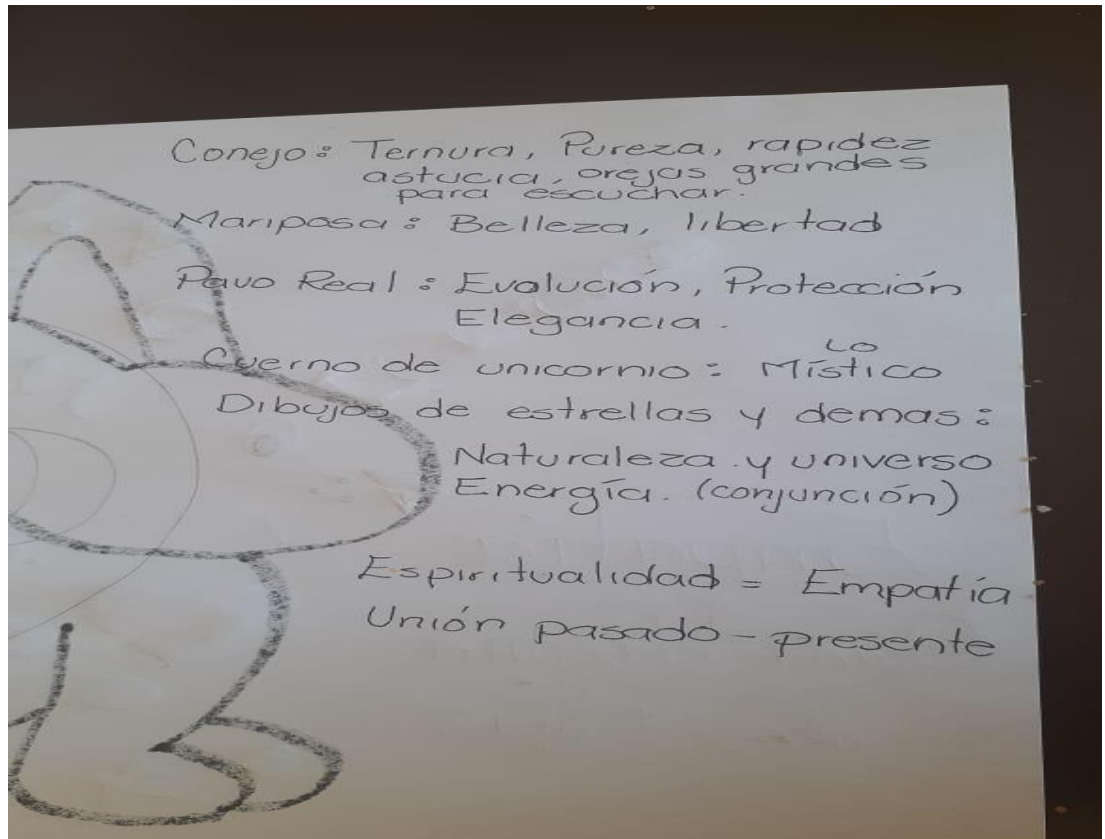 Conejo: Ternura, Pureza, rapidez
astucia, orejas grandes
para escuchar.
Mariposa: Belleza, libertad
Pavo Real: Evolución, Protección
Elegancia.
Cuerno de unicornio: Lo Místico
Dibujos de estrellas y demas:
Naturaleza y universo
Energía. (conjunción)
Espiritualidad = Empatía
Unión pasado - presente